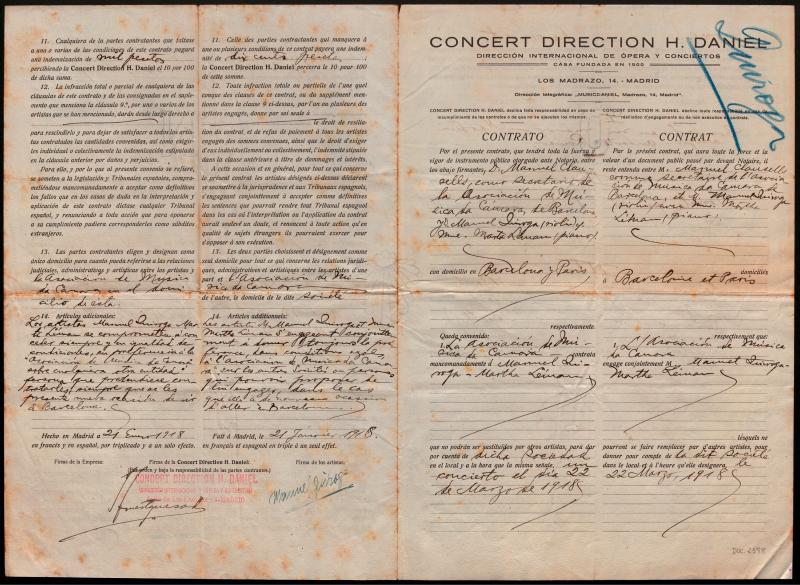 11. Cualquiera de las partes contratantes que faltase
a una o varias de las condiciones de este contrato pagará
una indemnización de mil pesetas
percibiendo la Concert Direction H. Daniel el 10 por 100
de dicha suma.
12. La infracción total o parcial de cualquiera de las
cláusulas de este contrato y de las consignadas en el suplemento
que menciona la cláusula 9.ª, por uno o varios de los
artistas que se han mencionado, darán desde luego derecho a
para rescindirlo y para dejar de satisfacer a todos los artistas
contratados las cantidades convenidas, así como exigirles
individual o colectivamente la indemnización estipulada
en la cláusula anterior por daños y perjuicios.
Para ello, y por lo que al presente convenio se refiere,
se someten a la legislación y Tribunales españoles, comprometiéndose
mancomunadamente a aceptar como definitivos
los fallos que en los casos de duda en la interpretación y
aplicación de este contrato dictase cualquier Tribunal
español, y renunciando a toda acción que para oponerse
a su cumplimiento pudiera corresponderles como súbditos
extranjeros.
13. Las partes contratantes eligen y designan como
único domicilio para cuanto pueda referirse a las relaciones
judiciales, administrativas y artísticas entre los artistas y
la Asociación de Música
de Camara el domicilio
de esta.
14. Artículos adicionales:
Los artistas Manuel Quiroga Marthe
Leman se comprometen á conceder
siempre y en igualdad de
condiciones, su preferencia á la
"Asociación de Música de Camara"
sobre cualquiera otra entidad ó
persona que pretendiese contratarles,
siempre que se les
presente nueva ocasión de ir
á Barcelona.
Hecho en Madrid a 21 Enero 1918
en francés y en español, por triplicado y a un solo efecto.
Firma de la Empresa:
11. Celle des parties contractantes qui manquera à
une ou plusieurs conditions de ce contrat payera une indemnité
de dix cents pesetas
la Concert Direction H. Daniel percevra le 10 pour 100
de cette somme.
12. Toute infraction totale ou partielle de l'une quelconque
des clauses de ce contrat, ou du supplément mentionné
dans la clause 9 ci-dessus, par l'un ou plusieurs des
artistes engagés, donne par seul seule à
le droit de resiliation
du contrat, et de refus de paiement à tous les artistes
engagés des sommes convenues, ainsi que le droit d'exiger
d'eux individuellement ou collectivement, l'indemnité stipulée
dans la clause antérieure à titre de dommages et intérêts.
A cette occasion et en général, pour tout ce qui concerne
le présent contrat les artistes désignés ci-dessus déclarent
se soumettre à la jurisprudence et aux Tribunaux espagnols,
s'engageant conjointement à accepter comme définitives
les sentences que rendrait tout Tribunal espagnol
dans les cas où l'interprétation ou l'application du contrat
aurait soulevé un doute, et renoncent à toute action qu'en
qualité de sujets étrangers ils pourraient exercer pour
s'opposer à son exécution.
13. Les deux parties choisissent et désignent comme
seul domicile pour tout ce qui concerne les relations juridiques,
administratives et artistiques entre les artistes d'une
part et l'Asociación de Música
de Camara
de l'autre, le domicile de la dite société
14. Articles additionnels:
Les artistes M. Manuel Quiroga et Mme
Marthe Leman s'engagent conjointement
à donner toujours la préférence,
dans conditions égales,
à l'"Asociación de Música de Camara"
sur les autres sociétés ou personnes
qui pourrait proposer de
l'engager, dans le cas
que elle a de nouveau occasion
d'aller à Barcelone.
Fait à Madrid, le 21 Janvier 1918.
en français et espagnol et triple à un seul effet.
Firma de la Concert Direction H. Daniel:
(Por orden y bajo la responsabilidad de las partes contratantes.)
Firma de los artistas:
CONCERT DIRECTION H. DANIEL
Manuel Quiroga
Quiroga
CONCERT DIRECTION H. DANIEL
DIRECCIÓN INTERNACIONAL DE ÓPERA Y CONCIERTOS
CASA FUNDADA EN 1900
LOS MADRAZO, 14.-MADRID
Dirección telegráfica: „MUSICDANIEL, Madrazo, 14, Madrid"
CONCERT DIRECTION H. DANIEL declina toda responsabilidad en caso de
incumplimiento de los contratos o de que no se ejecuten los mismos.
CONTRATO
Por el presente contrato, que tendrá toda la fuerza y
vigor de instrumento público otorgado ante Notario, entre
los abajo firmantes, D. Manuel Clausells,
como Secretario de
la Asociación de Música
Da Camera, de Barcelona
y D. Manuel Quiroga (violín) y
Mme. Marthe Leman (piano).
con domicilio en Barcelona y Paris
respectivamente
Queda convenido:
1. La Asociación de Música
da Camara contrata
mancomunadamente á Manuel Quiroga
- Marthe Leman
que no podrán ser sustituídos por otros artistas, para dar
por cuenta de dicha Sociedad
en el local y a la hora que la misma señale, un
concierto el dia 22
de Marzo de 1918
CONCERT DIRECTION H. DANIEL décline toute responsabilité en cas de
résiliation d'engagements ou de non exécution des contrats.
CONTRAT
Par le présent contrat, qui aura toute la force et la
valeur d'un document public passé par devant Notaire, il
reste entendu entre M. Manuel Clausells
comme secretaire de l'Asociación
de Música da Camara de
Barcelona et M. Manuel Quiroga
(violon) et Mme Marthe
Leman (piano)
domiciliés
à Barcelone et Paris
respectivement que:
1. L'Asociación de Música
da Camara
engage conjointement M. Manuel Quiroga-
Marthe Leman
lesquels ne
pourront se faire remplacer par d'autres artistes, pour
donner pour compte de la dite Société
dans le local et à l'heure qu'elle désignera le
22 Marzo, 1918
DOC. 2398